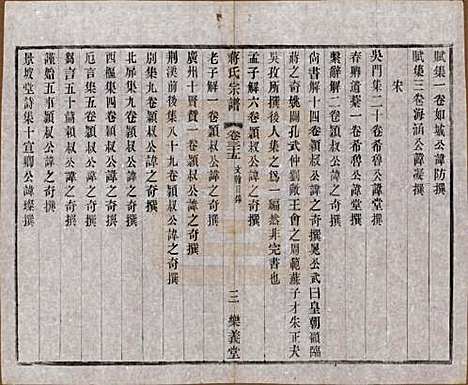 賦集一卷如城公諱防撰
賦集三卷海涵公諱凝撰
宋
吳門集二十卷希魯公諱堂撰
春卿遺藁一卷希魯公諱堂撰
繫辭解二卷穎叔公諱之奇撰
尚書解十四卷穎叔公諱之奇撰晁公武曰皇朝顧臨
蔣之奇姚闢孔武仲劉敞王會之周範蘇子才朱正夫
吳孜所撰後人集之為一編然非完書也
孟子解六卷穎叔公諱之奇撰
蔣氏宗譜 卷三十五 三 樂義堂
老子解一卷穎叔公諱之奇撰
廣州十賢贊一卷穎叔公諱之奇撰
荆溪前後集八十九卷穎叔公諱之奇撰
別集九卷穎叔公諱之奇撰
北扉集九卷穎叔公諱之奇撰
西樞集四卷穎叔公諱之奇撰
卮言集五卷穎叔公諱之奇撰
芻言五十篇穎叔公諱之奇撰
謹始五事穎叔公諱之奇撰
景坡堂詩集十宣卿公諱璨撰